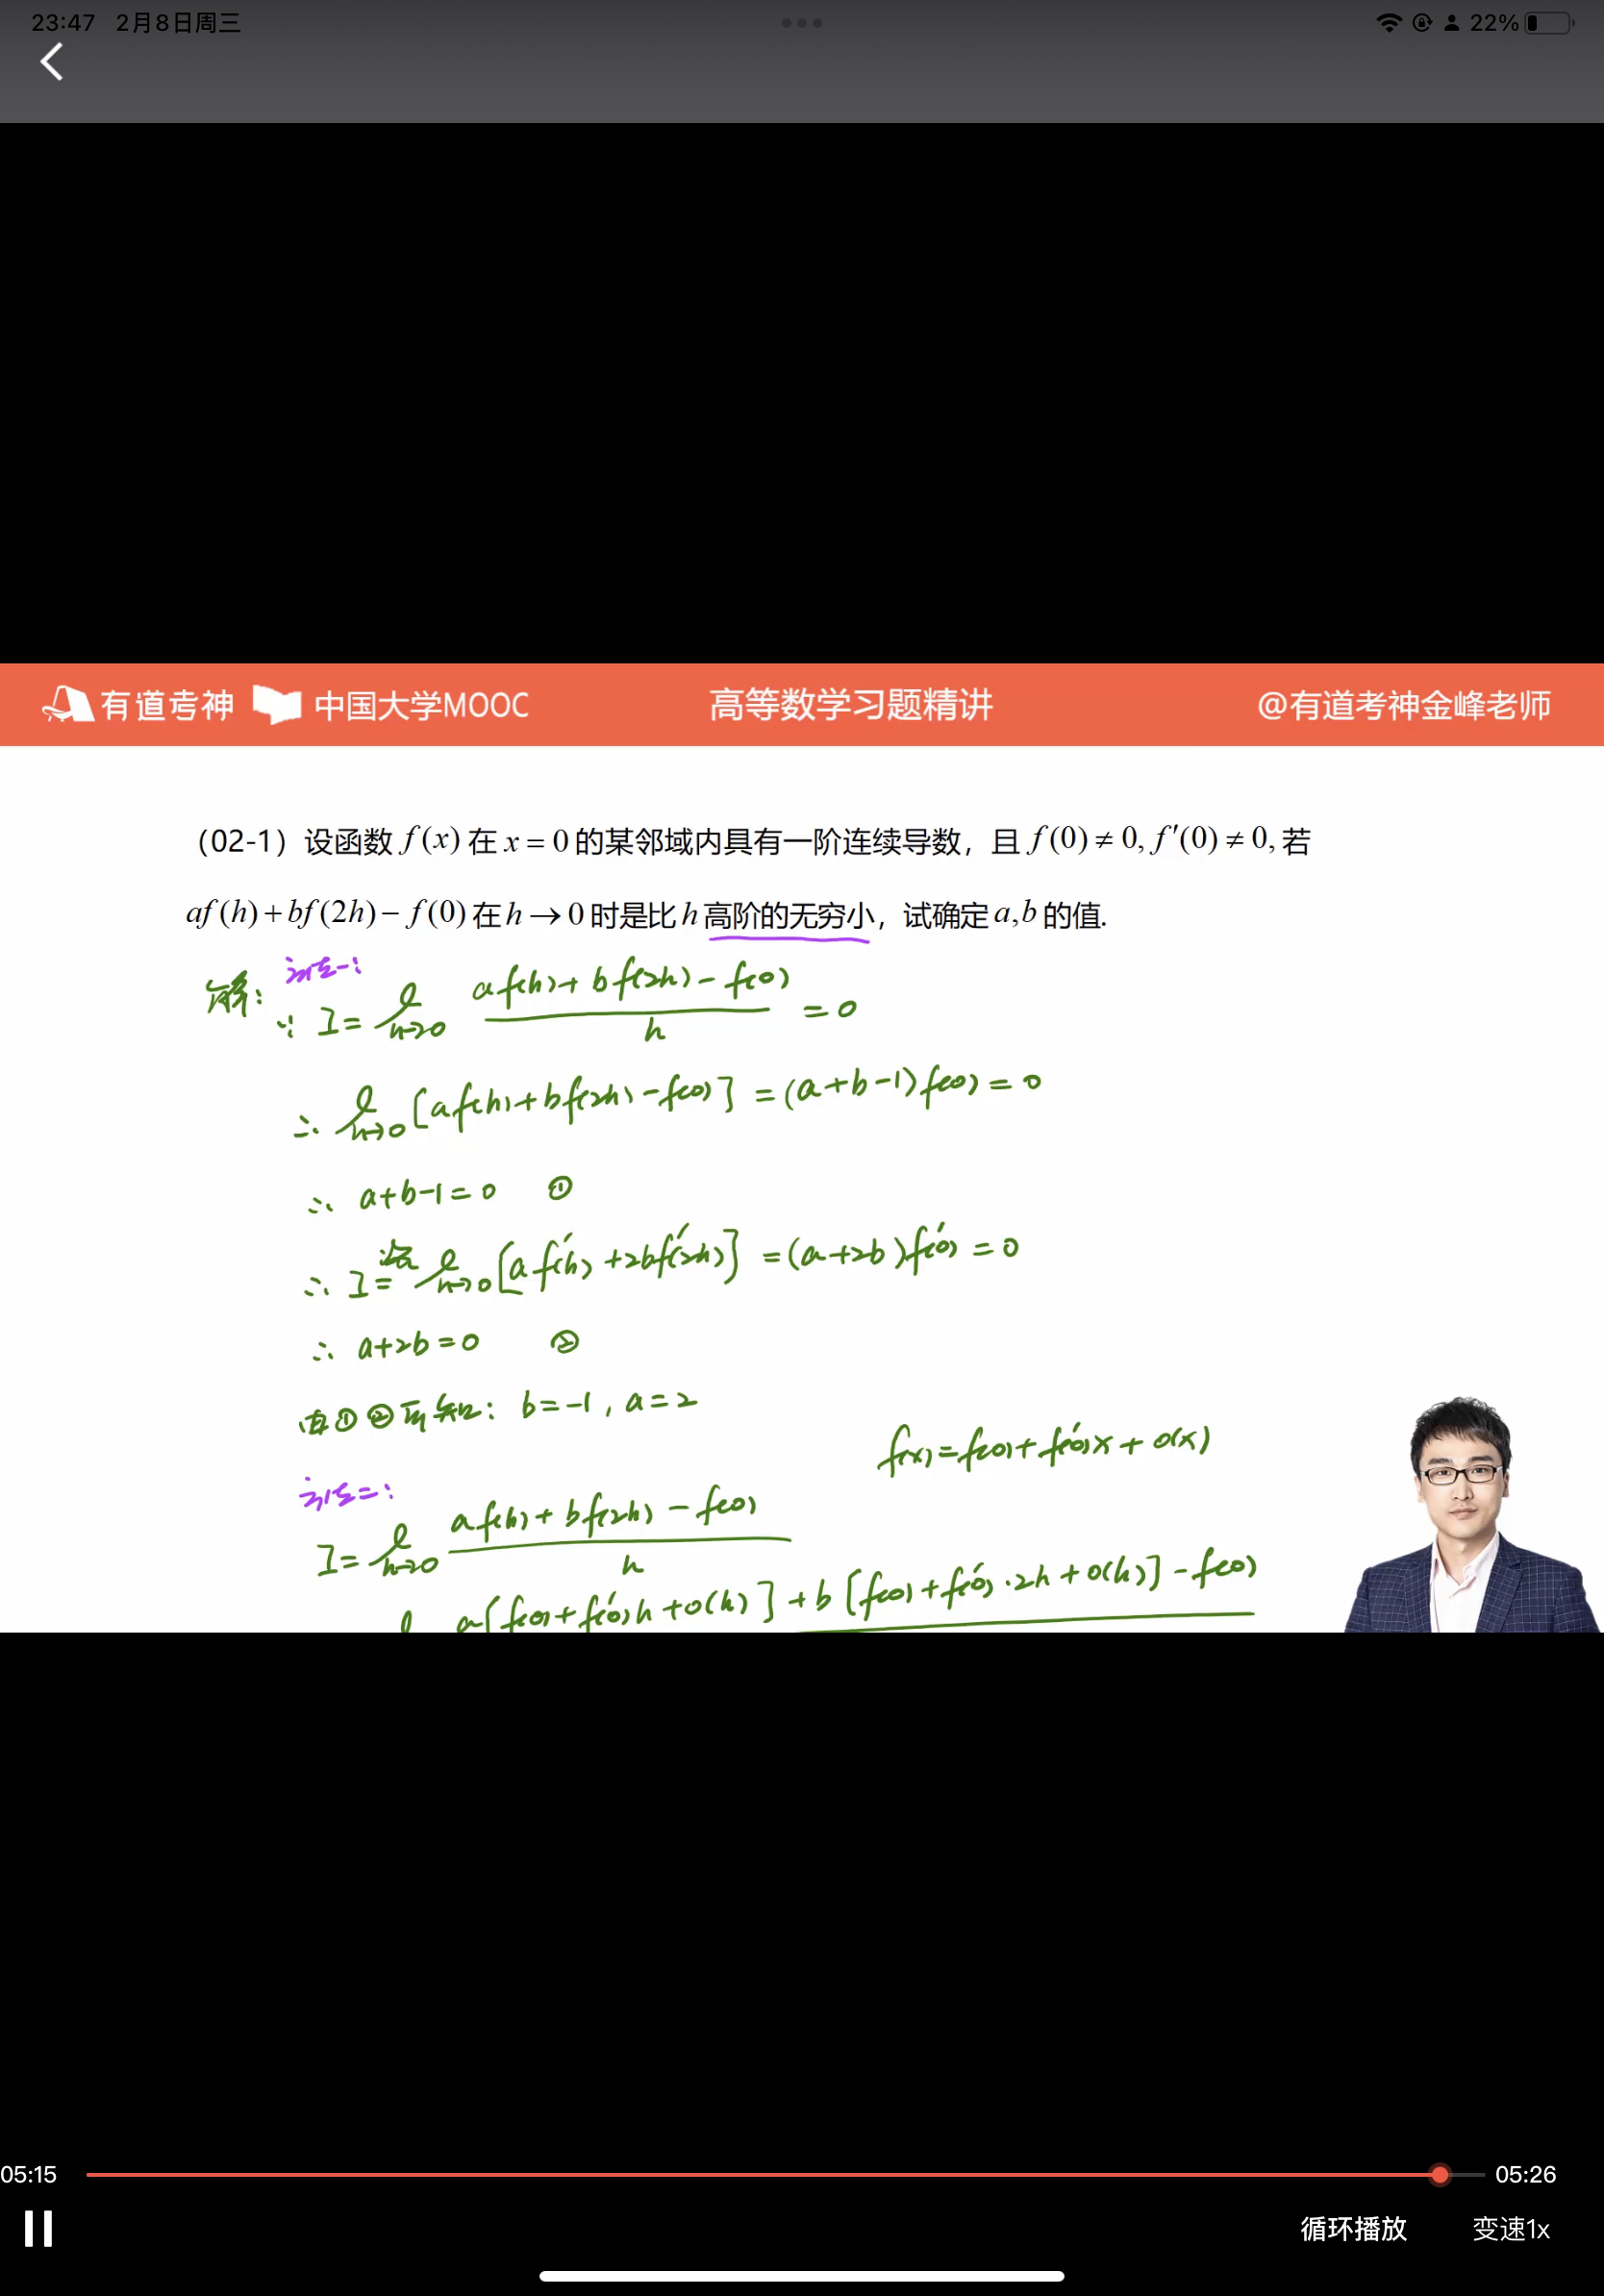 23:47 2月8日周三
22%
有道考神 中国大学MOOC 高等数学习题精讲 @有道考神金峰老师
（02-1）设函数 f(x) 在 x = 0 的某邻域内具有一阶连续导数，且 f(0) ≠ 0, f′(0) ≠ 0, 若
af(h)+bf(2h)− f(0) 在 h → 0 时是比 h 高阶的无穷小，试确定 a,b 的值.
解: 方法一:
∵ I = l h→0 (a f(h) + b f(2h) - f(0)) / h = 0
∴ l h→0 [a f(h) + b f(2h) - f(0)] = (a+b-1) f(0) = 0
∴ a+b-1=0 ①
∴ I 洛= l h→0 [a f′(h) + 2b f′(2h)] = (a+2b) f′(0) = 0
∴ a+2b=0 ②
由①②可知: b=-1, a=2
f(x) = f(0) + f′(0)x + o(x)
方法二:
I = l h→0 (a f(h) + b f(2h) - f(0)) / h
l a[f(0) + f′(0)h + o(h)] + b[f(0) + f′(0)·2h + o(h)] - f(0)
05:15 05:26
循环播放 变速1x